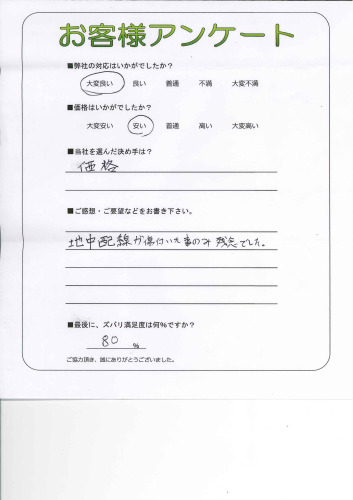 お客様アンケート
■弊社の対応はいかがでしたか？
大変良い 良い 普通 不満 大変不満
■価格はいかがでしたか？
大変安い 安い 普通 高い 大変高い
■当社を選んだ決め手は？
価格
■ご感想・ご要望などをお書き下さい。
地中配線が傷付いた事のみ残念でした。
■最後に、ズバリ満足度は何％ですか？
80 ％
ご協力頂き、誠にありがとうございました。